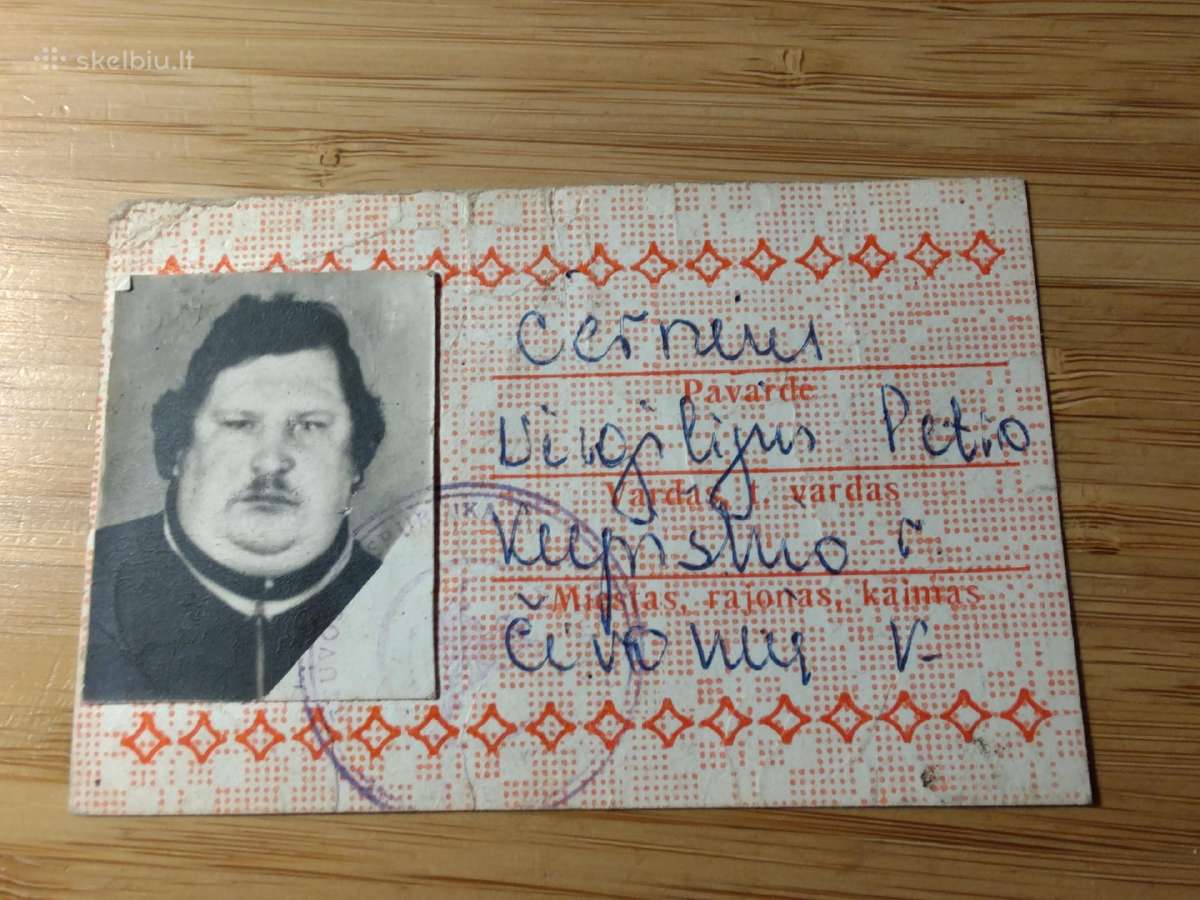 skelbiu.lt
Černius
Pavardė
Virgilijus Petro
Vardas, t. vardas
Kupiškio r.
Miestas, rajonas, kaimas
Čivonių k.